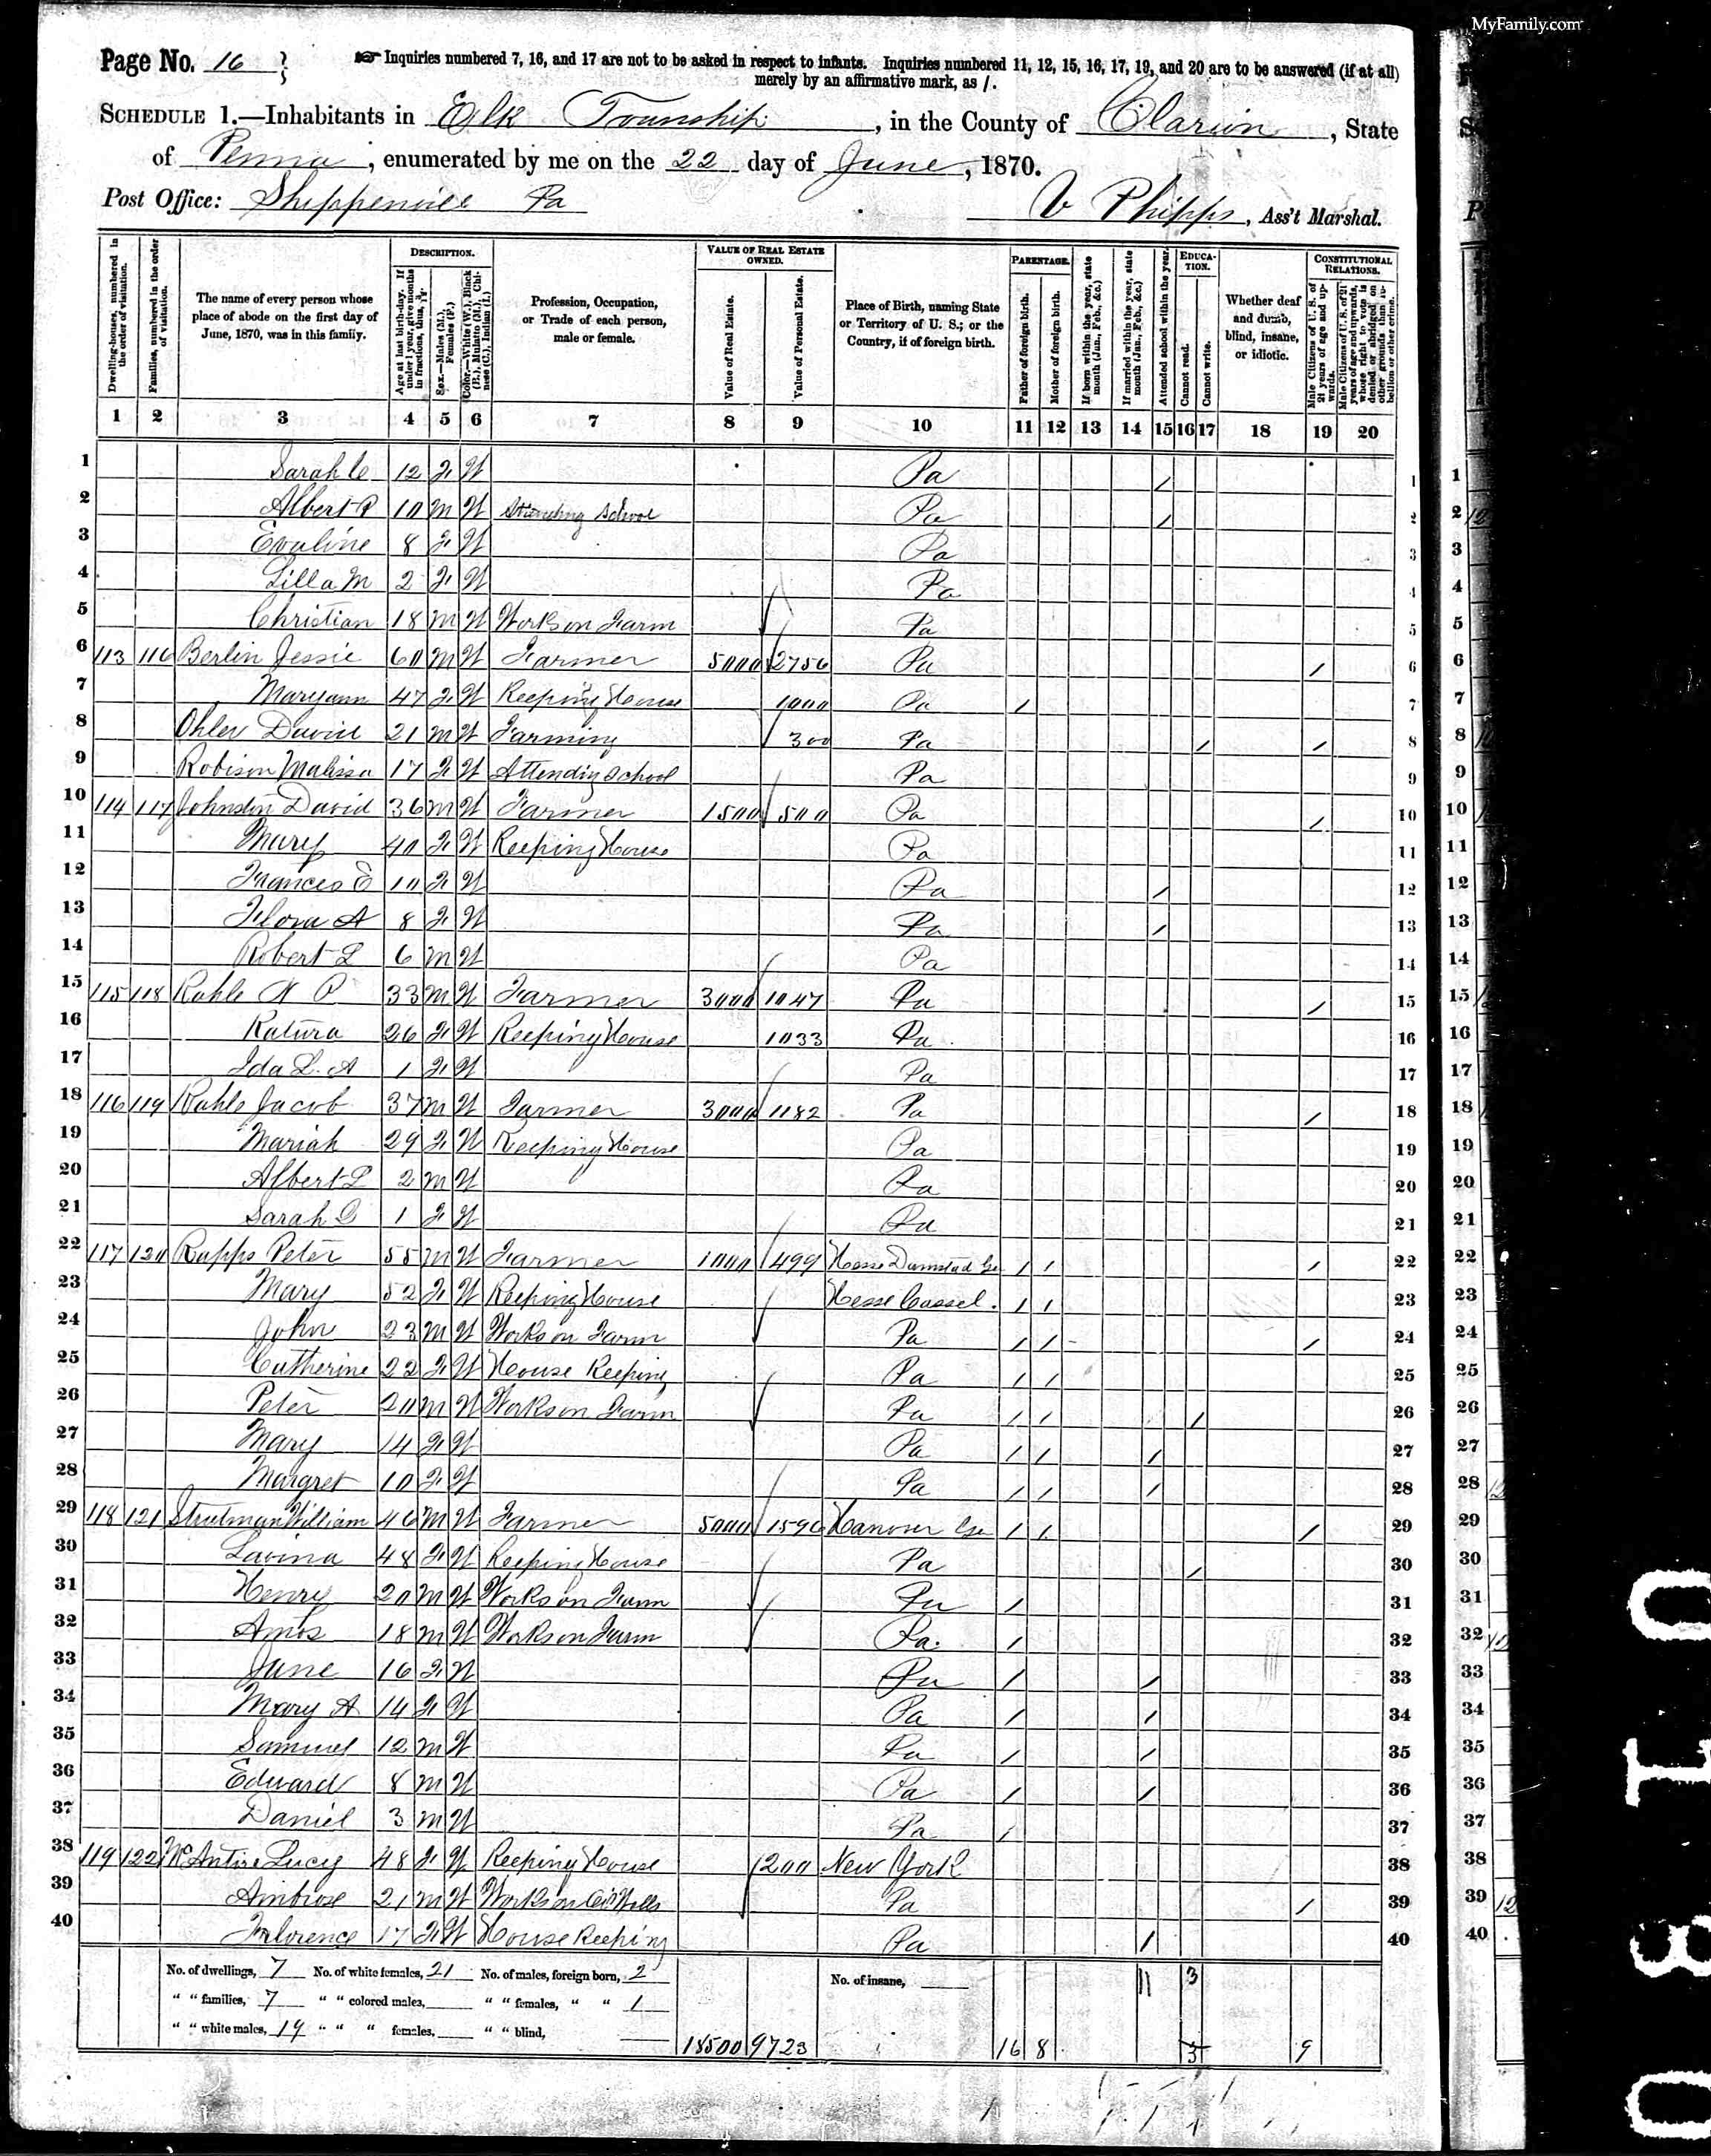 MyFamily.com
Page No. 16
☞ Inquiries numbered 7, 16, and 17 are not to be asked in respect to infants. Inquiries numbered 11, 12, 15, 16, 17, 19, and 20 are to be answered (if at all)
merely by an affirmative mark, as /.
SCHEDULE 1.—Inhabitants in Elk Township, in the County of Clarion, State
of Penna, enumerated by me on the 22 day of June, 1870.
Post Office: Shippenville Pa
Phipps, Ass't Marshal.
Dwelling-houses, numbered in the order of visitation.
Families, numbered in the order of visitation.
The name of every person whose place of abode on the first day of June, 1870, was in this family.
DESCRIPTION.
Age at last birth-day. If under 1 year, give months in fractions, thus, 3/12.
Sex.—Males (M.), Females (F.)
Color.—White (W.), Black (B.), Mulatto (M.), Chinese (C.), Indian (I.)
Profession, Occupation, or Trade of each person, male or female.
VALUE OF REAL ESTATE OWNED.
Value of Real Estate.
Value of Personal Estate.
Place of Birth, naming State or Territory of U. S.; or the Country, if of foreign birth.
PARENTAGE.
Father of foreign birth.
Mother of foreign birth.
If born within the year, state month (Jan., Feb., &c.)
If married within the year, state month (Jan., Feb., &c.)
Attended school within the year.
EDUCATION.
Cannot read.
Cannot write.
Whether deaf and dumb, blind, insane, or idiotic.
CONSTITUTIONAL RELATIONS.
Male Citizens of U. S. of 21 years of age and upwards.
Male Citizens of U. S. of 21 years of age and upwards, whose right to vote is denied or abridged on other grounds than rebellion or other crime.
1 2 3 4 5 6 7 8 9 10 11 12 13 14 15 16 17 18 19 20
1 Sarah C 12 F W Pa / 1
2 Albert P 10 M W Attending School Pa / 2
3 Evaline 8 F W Pa 3
4 Lilla M 2 F W Pa 4
5 Christian 18 M W Works on Farm Pa 5
6 113 116 Berlin Jessie 60 M W Farmer 5000 2756 Pa / 6
7 Maryann 47 F W Keeping House 1000 Pa / 7
8 Ohler David 21 M W Farming 300 Pa / / 8
9 Robison Malissa 17 F W Attending School Pa 9
10 114 117 Johnston David 36 M W Farmer 1500 500 Pa / 10
11 Mary 40 F W Keeping House Pa 11
12 Frances E 10 F W Pa / 12
13 Flora A 8 F W Pa / 13
14 Robert L 6 M W Pa 14
15 115 118 Kahle W P 33 M W Farmer 3000 1047 Pa / 15
16 Katura 26 F W Keeping House 1033 Pa 16
17 Ida L. A 1 F W Pa 17
18 116 119 Kahle Jacob 37 M W Farmer 3000 1182 Pa / 18
19 Mariah 29 F W Keeping House Pa 19
20 Albert L 2 M W Pa 20
21 Sarah D 1 F W Pa 21
22 117 120 Rapps Peter 55 M W Farmer 1000 499 Hesse Darmstad Ge / / / 22
23 Mary 52 F W Keeping House Hesse Cassel. / / 23
24 John 23 M W Works on Farm Pa / / / 24
25 Catherine 22 F W House Keeping Pa / / 25
26 Peter 20 M W Works on Farm Pa / / / 26
27 Mary 14 F W Pa / / / 27
28 Margret 10 F W Pa / / / 28
29 118 121 Strutman William 46 M W Farmer 5000 1596 Hanover Ge / / / 29
30 Lavina 48 F W Keeping House Pa / 30
31 Henry 20 M W Works on Farm Pa / 31
32 Amos 18 M W Works on Farm Pa. / 32
33 Jane 16 F W Pa / / 33
34 Mary A 14 F W Pa / / 34
35 Samuel 12 M W Pa / / 35
36 Edward 8 M W Pa / / 36
37 Daniel 3 M W Pa / 37
38 119 122 McAntire Lucy 48 F W Keeping House 200 New York 38
39 Ambrose 21 M W Works on Oil Wells Pa / 39
40 Florence 17 F W House Keeping Pa / 40
No. of dwellings, 7 No. of white females, 21 No. of males, foreign born, 2 No. of insane, 11 3
" " families, 7 " " colored males, " " females, " " 1
" " white males, 19 " " " females, " " blind,
18500 9723 16 8 3 9